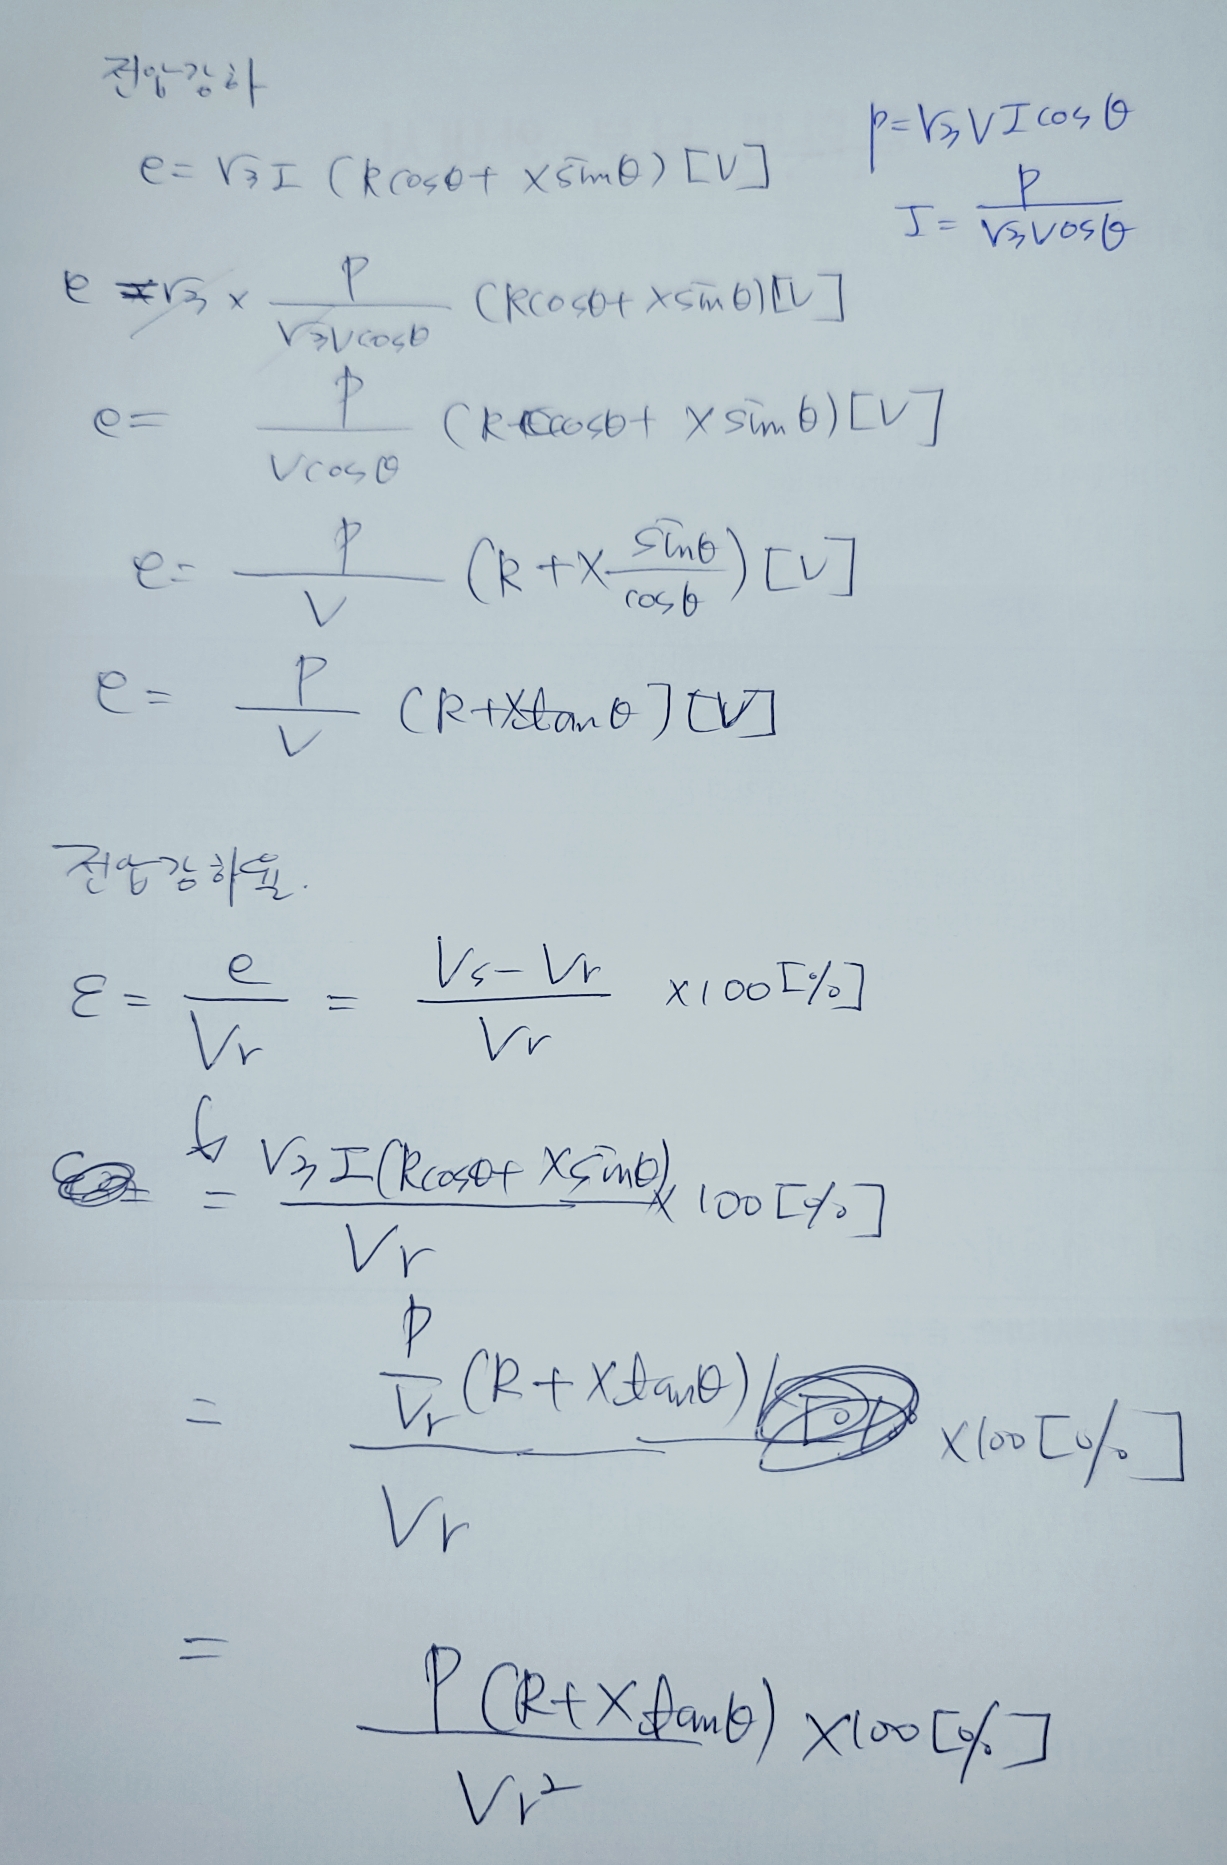 전압강하
e = √3 I (Rcosθ + X sinθ) [V]
P = √3 V I cos θ
I = P / √3 V cosθ
e = √3 × P / √3 V cosθ (Rcosθ + X sin θ) [V]
e = P / V cos θ (R cosθ + X sin θ) [V]
e = P / V (R + X sinθ / cosθ) [V]
e = P / V (R + X tan θ ] [V]
전압강하율.
ε = e / Vr = Vs - Vr / Vr × 100 [%]
= √3 I (Rcosθ + X sinθ) / Vr × 100 [%]
= P / Vr (R + X tanθ) / Vr × 100 [%]
= P (R + X tanθ) / Vr² × 100 [%]